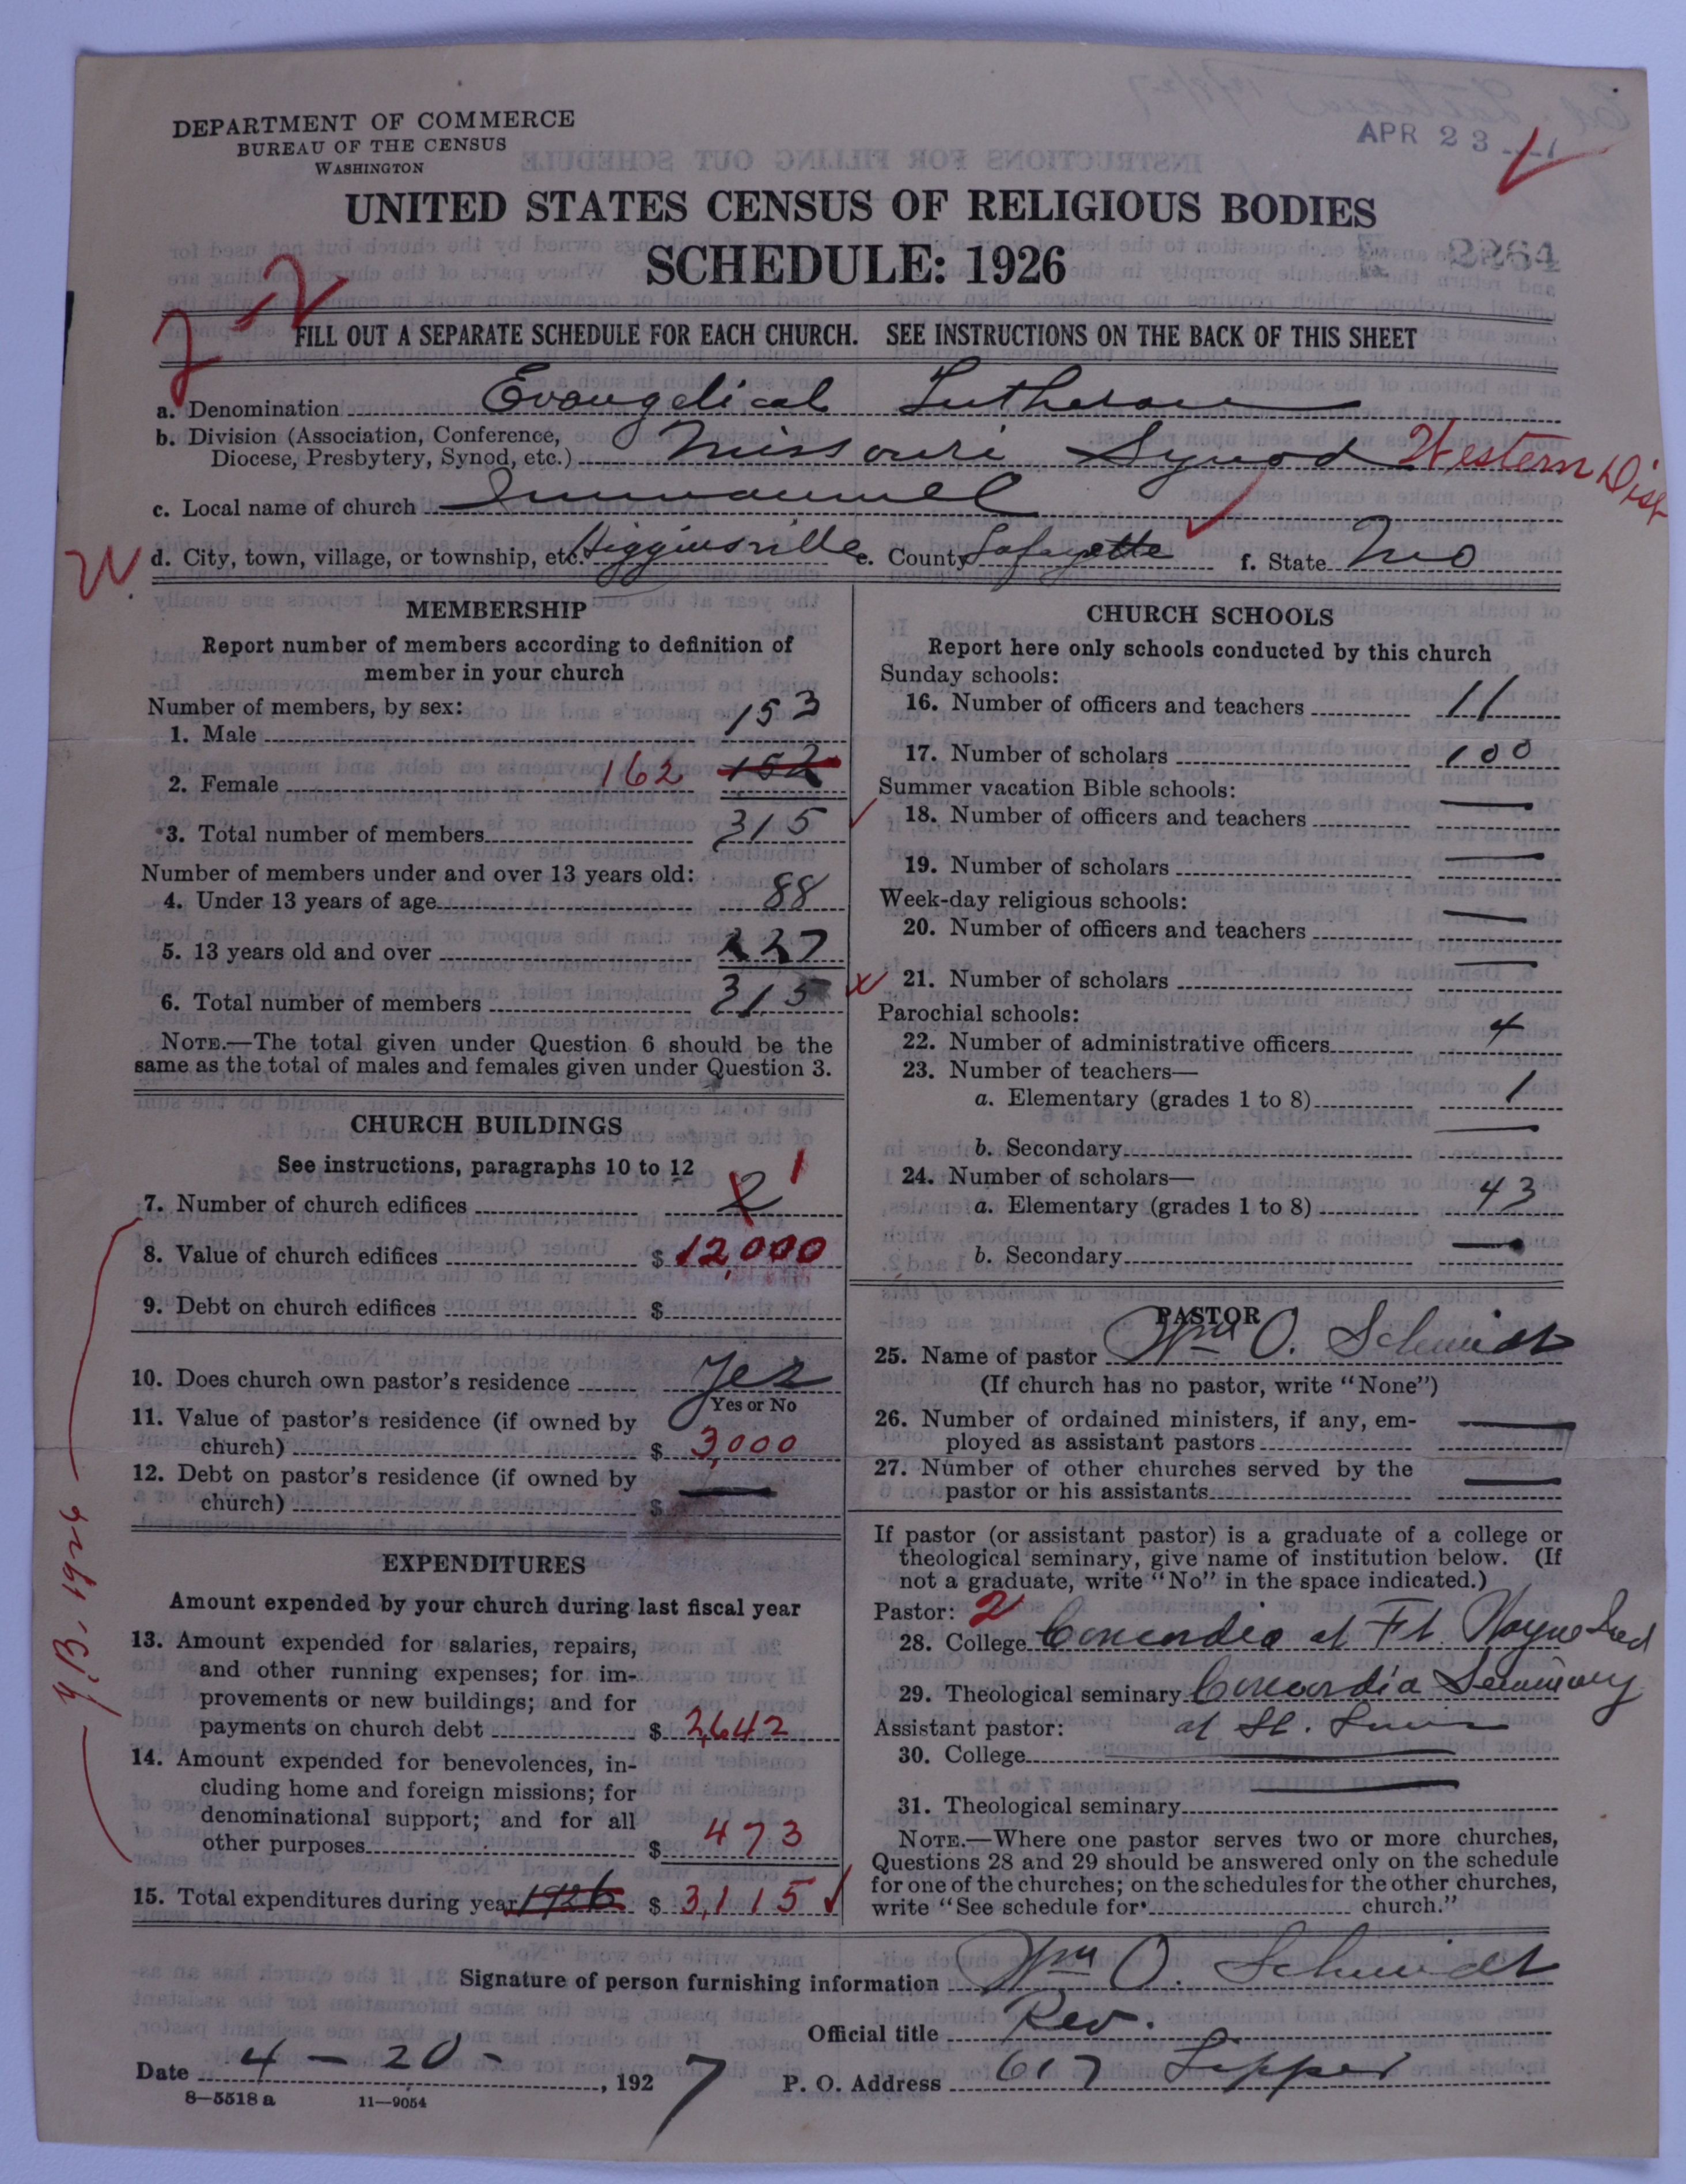 DEPARTMENT OF COMMERCE
BUREAU OF THE CENSUS
WASHINGTON
APR 23
UNITED STATES CENSUS OF RELIGIOUS BODIES
SCHEDULE: 1926
2264
FILL OUT A SEPARATE SCHEDULE FOR EACH CHURCH. SEE INSTRUCTIONS ON THE BACK OF THIS SHEET
a. Denomination Evangelical Lutheran
b. Division (Association, Conference,
Diocese, Presbytery, Synod, etc.) Missouri Synod Western Dist
c. Local name of church Immanuel
d. City, town, village, or township, etc. Higginsville e. County Lafayette f. State Mo
MEMBERSHIP
Report number of members according to definition of
member in your church
Number of members, by sex:
1. Male 153
2. Female 162 152
3. Total number of members 315
Number of members under and over 13 years old:
4. Under 13 years of age 88
5. 13 years old and over 227
6. Total number of members 315
NOTE.—The total given under Question 6 should be the
same as the total of males and females given under Question 3.
CHURCH BUILDINGS
See instructions, paragraphs 10 to 12
7. Number of church edifices 2 1
8. Value of church edifices $ 12,000
9. Debt on church edifices $
10. Does church own pastor's residence Yes
Yes or No
11. Value of pastor's residence (if owned by
church) $ 3,000
12. Debt on pastor's residence (if owned by
church) $ —
Y.B. 1926
EXPENDITURES
Amount expended by your church during last fiscal year
13. Amount expended for salaries, repairs,
and other running expenses; for im-
provements or new buildings; and for
payments on church debt $ 2,642
14. Amount expended for benevolences, in-
cluding home and foreign missions; for
denominational support; and for all
other purposes $ 473
15. Total expenditures during year 1926 $ 3,115
CHURCH SCHOOLS
Report here only schools conducted by this church
Sunday schools:
16. Number of officers and teachers 11
17. Number of scholars 100
Summer vacation Bible schools:
18. Number of officers and teachers —
19. Number of scholars —
Week-day religious schools:
20. Number of officers and teachers —
21. Number of scholars —
Parochial schools:
22. Number of administrative officers 4
23. Number of teachers—
a. Elementary (grades 1 to 8) 1
b. Secondary —
24. Number of scholars—
a. Elementary (grades 1 to 8) 43
b. Secondary —
PASTOR
25. Name of pastor Wm O. Schmidt
(If church has no pastor, write "None")
26. Number of ordained ministers, if any, em-
ployed as assistant pastors —
27. Number of other churches served by the
pastor or his assistants —
If pastor (or assistant pastor) is a graduate of a college or
theological seminary, give name of institution below. (If
not a graduate, write "No" in the space indicated.)
Pastor: 2
28. College Concordia at Ft. Wayne Ind
29. Theological seminary Concordia Seminary
Assistant pastor: at St. Louis
30. College —
31. Theological seminary —
NOTE.—Where one pastor serves two or more churches,
Questions 28 and 29 should be answered only on the schedule
for one of the churches; on the schedules for the other churches,
write "See schedule for church."
Signature of person furnishing information Wm O. Schmidt
Official title Rev.
Date 4 - 20 - , 1927
P. O. Address 617 Lipper
8—5518 a 11—9054